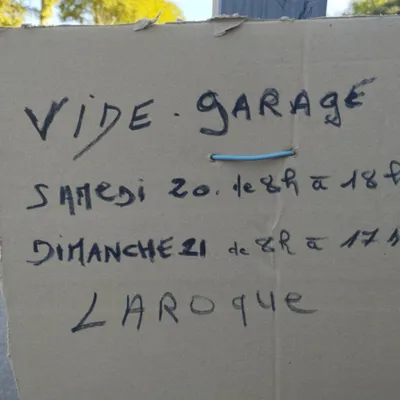 VIDE. GARAGE
SAMEDI 20. de 8h à 18h
DIMANCHE 21 de 8h à 17h
LAROque